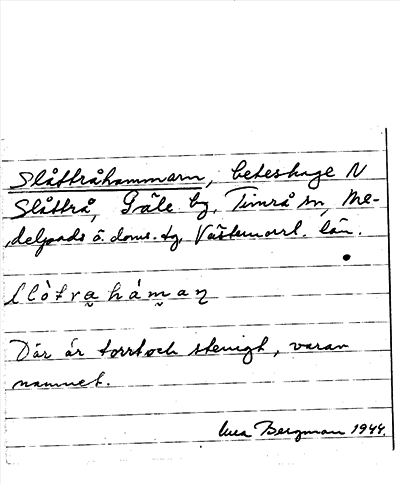 Slåttråhammarn, beteshage N
Slåttrå, Gäle by, Timrå sn, Me-
delpads ö. doms. tg, Västernorrl. län.
Där är torrt och stenigt, varav
namnet.
Bergman 1944.